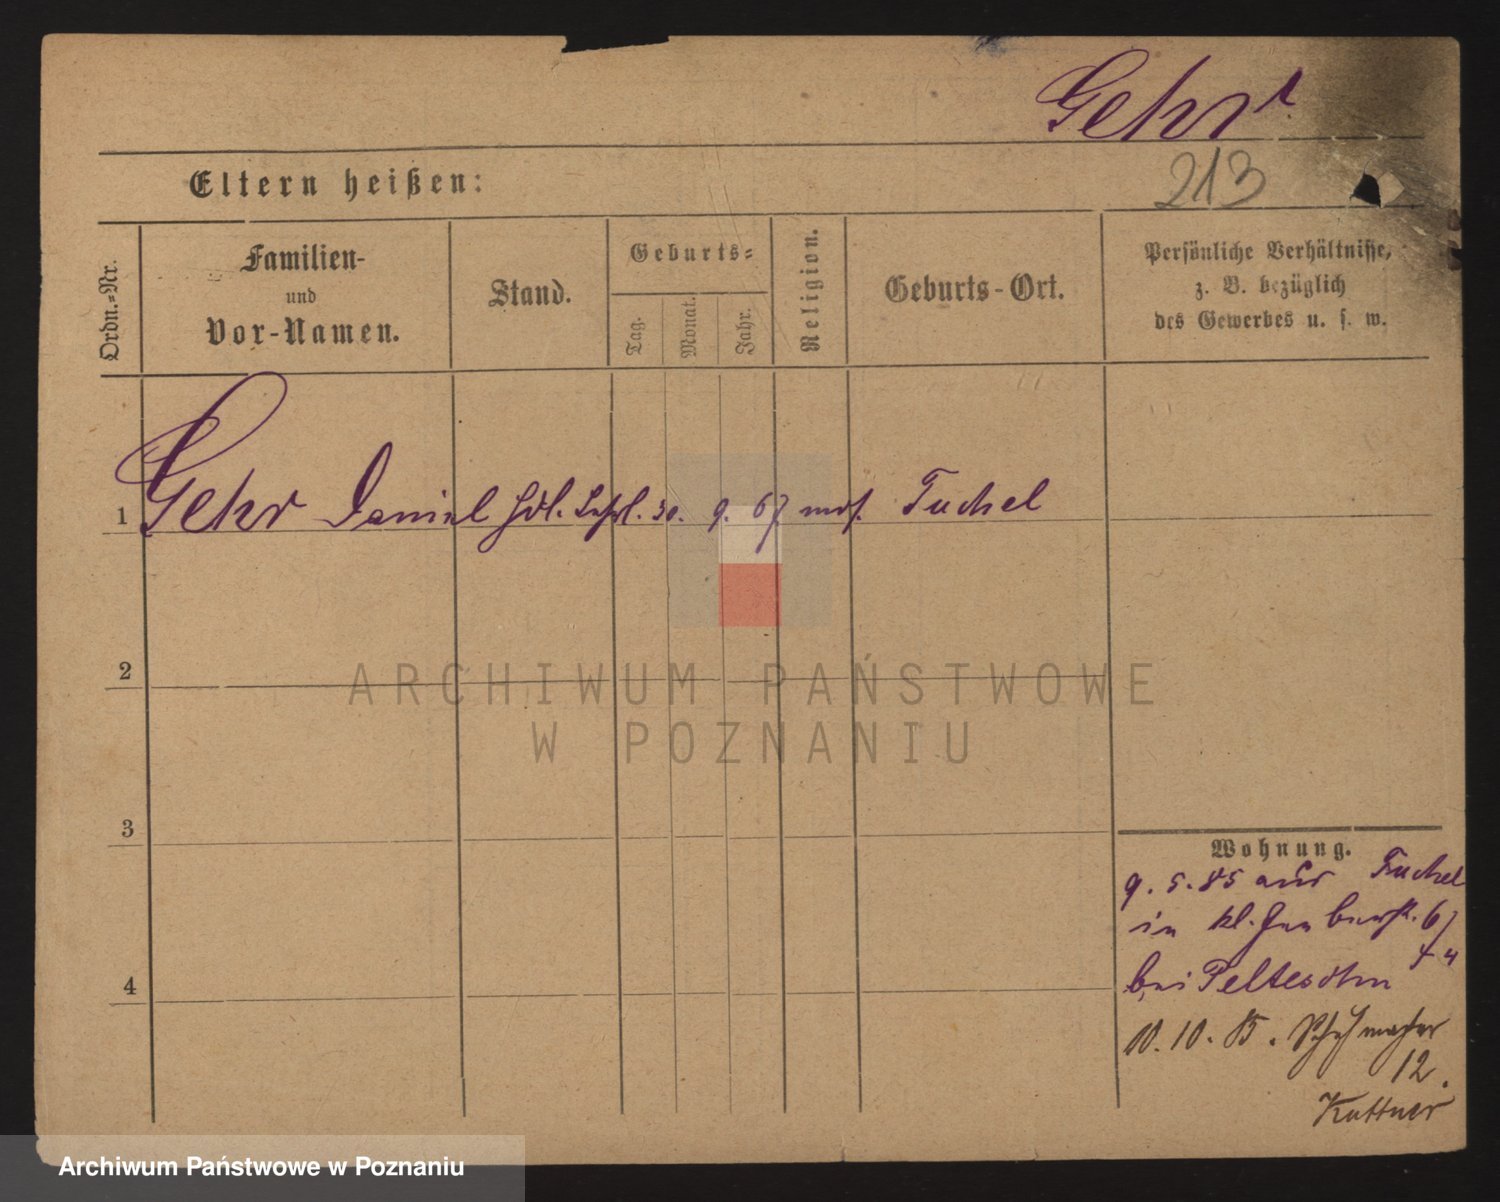 Gehr
213
Eltern heißen:
Ordn.=Nr.
Familien-
und
Vor-Namen.
Stand.
Geburts=
Tag.
Monat.
Jahr.
Religion.
Geburts-Ort.
Persönliche Verhältnisse,
z. B. bezüglich
des Gewerbes u. s. w.
1 Gehr Daniel Hdl. Lehrl. 30. 9. 67 mos. Tuchel
2
3
4
Wohnung.
9. 5. 85 aus Tuchel
in kl. 6/7
bei Peltesohn
10. 10. 85. Schuhmacher
12.
Kuttner
ARCHIWUM PAŃSTWOWE
W POZNANIU
Archiwum Państwowe w Poznaniu